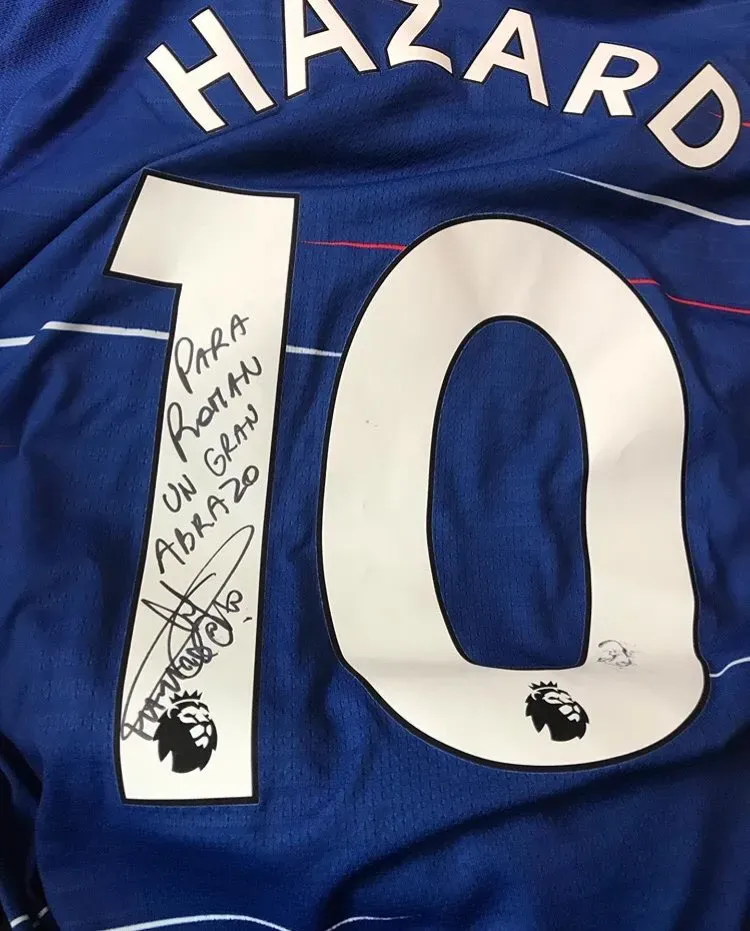 HAZARD
10
PARA
ROMAN
UN GRAN
ABRAZO